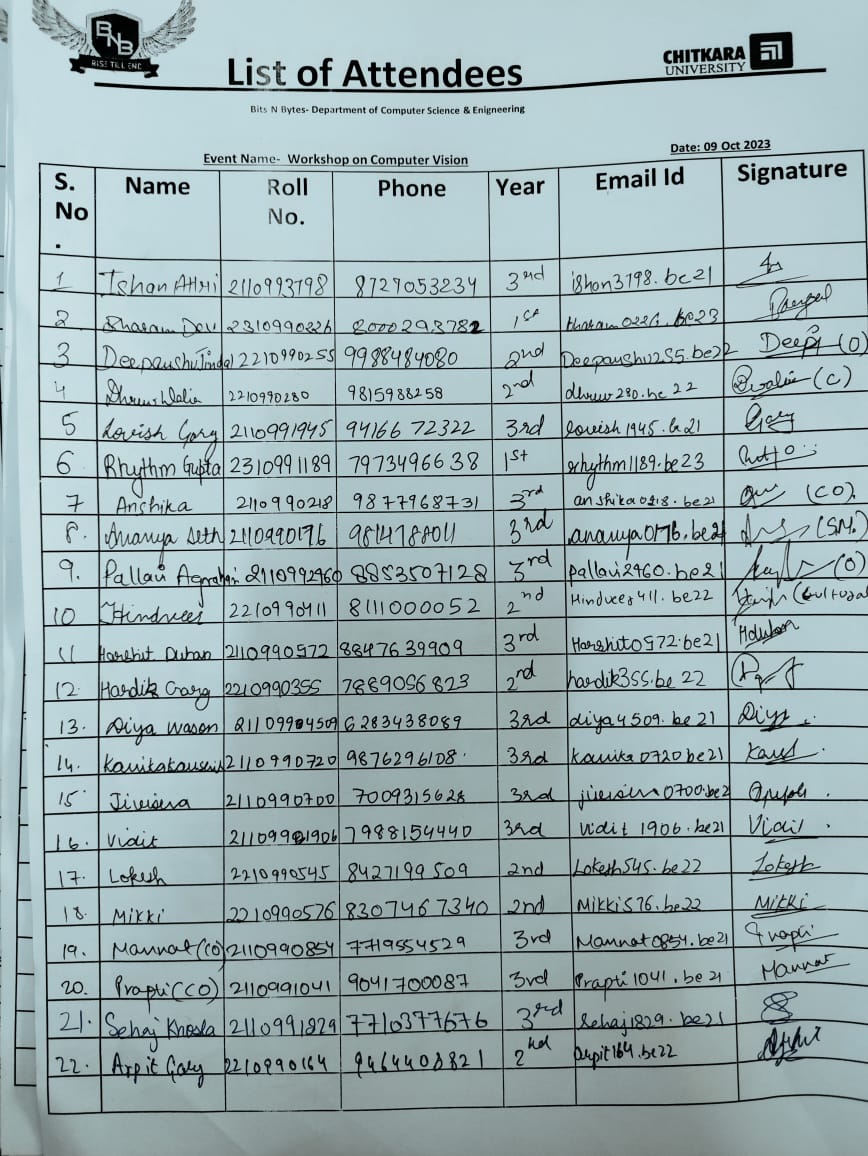 BNB
RISE TILL END
CHITKARA
UNIVERSITY
List of Attendees
Bits N Bytes- Department of Computer Science & Enigneering
Date: 09 Oct 2023
Event Name- Workshop on Computer Vision
S. No. Name Roll No. Phone Year Email Id Signature
1 Ishan Attri 2110993798 8727053234 3rd ishan3798.be21
2 2310990226 8000293782 1st be23
3 Deepanshu Jindal 2210990255 9988484080 2nd Deepanshu255.be22 Deepi (O)
4 2210990280 9815988258 2nd dhruv280.be22 (C)
5 Lovish Garg 2110991945 94166 72322 3rd lovish1945.be21 Garg
6 Rhythm Gupta 2310991189 7973496638 1st rhythm1189.be23
7 Anshika 2110990218 9877968731 3rd anshika0218.be21 (CO)
8. Ananya Seth 2110990176 9814788011 3rd ananya0176.be21 (SM.)
9. Pallavi Agrahari 2110992960 8853507128 3rd pallavi2960.be21 (O)
10 Hindveer 2210990411 8111000052 2nd Hindveer411.be22 (Cultural
11 Harshit Duhan 2110990572 8847639909 3rd Harshit0572.be21
12. Hardik Garg 2210990355 7889056823 2nd hardik355.be22
13. Diya Wason 21109904509 6283438089 3rd diya4509.be21 Diya
14. Kanika 2110990720 9876296108 3rd kanika0720be21
15 2110990700 7009315628 3rd 0700.be2
16. Vidit 7988154440 3rd vidit1906.be21 Vidit
17. Lokesh 2210990545 8427199509 2nd Lokesh545.be22 Lokesh
18. Mikki 2210990576 8307467340 2nd Mikki576.be22 Mikki
19. Mannat (CO) 2110990854 7719554529 3rd Mannat0854.be21 Prapti
20. Prapti (CO) 2110991041 9041700087 3rd Prapti1041.be21 Mannat
21. Sehaj Khosla 2110991829 7710377676 3rd Sehaj1829.be21
22. Arpit Garg 2210990164 9464408821 2nd Arpit164.be22